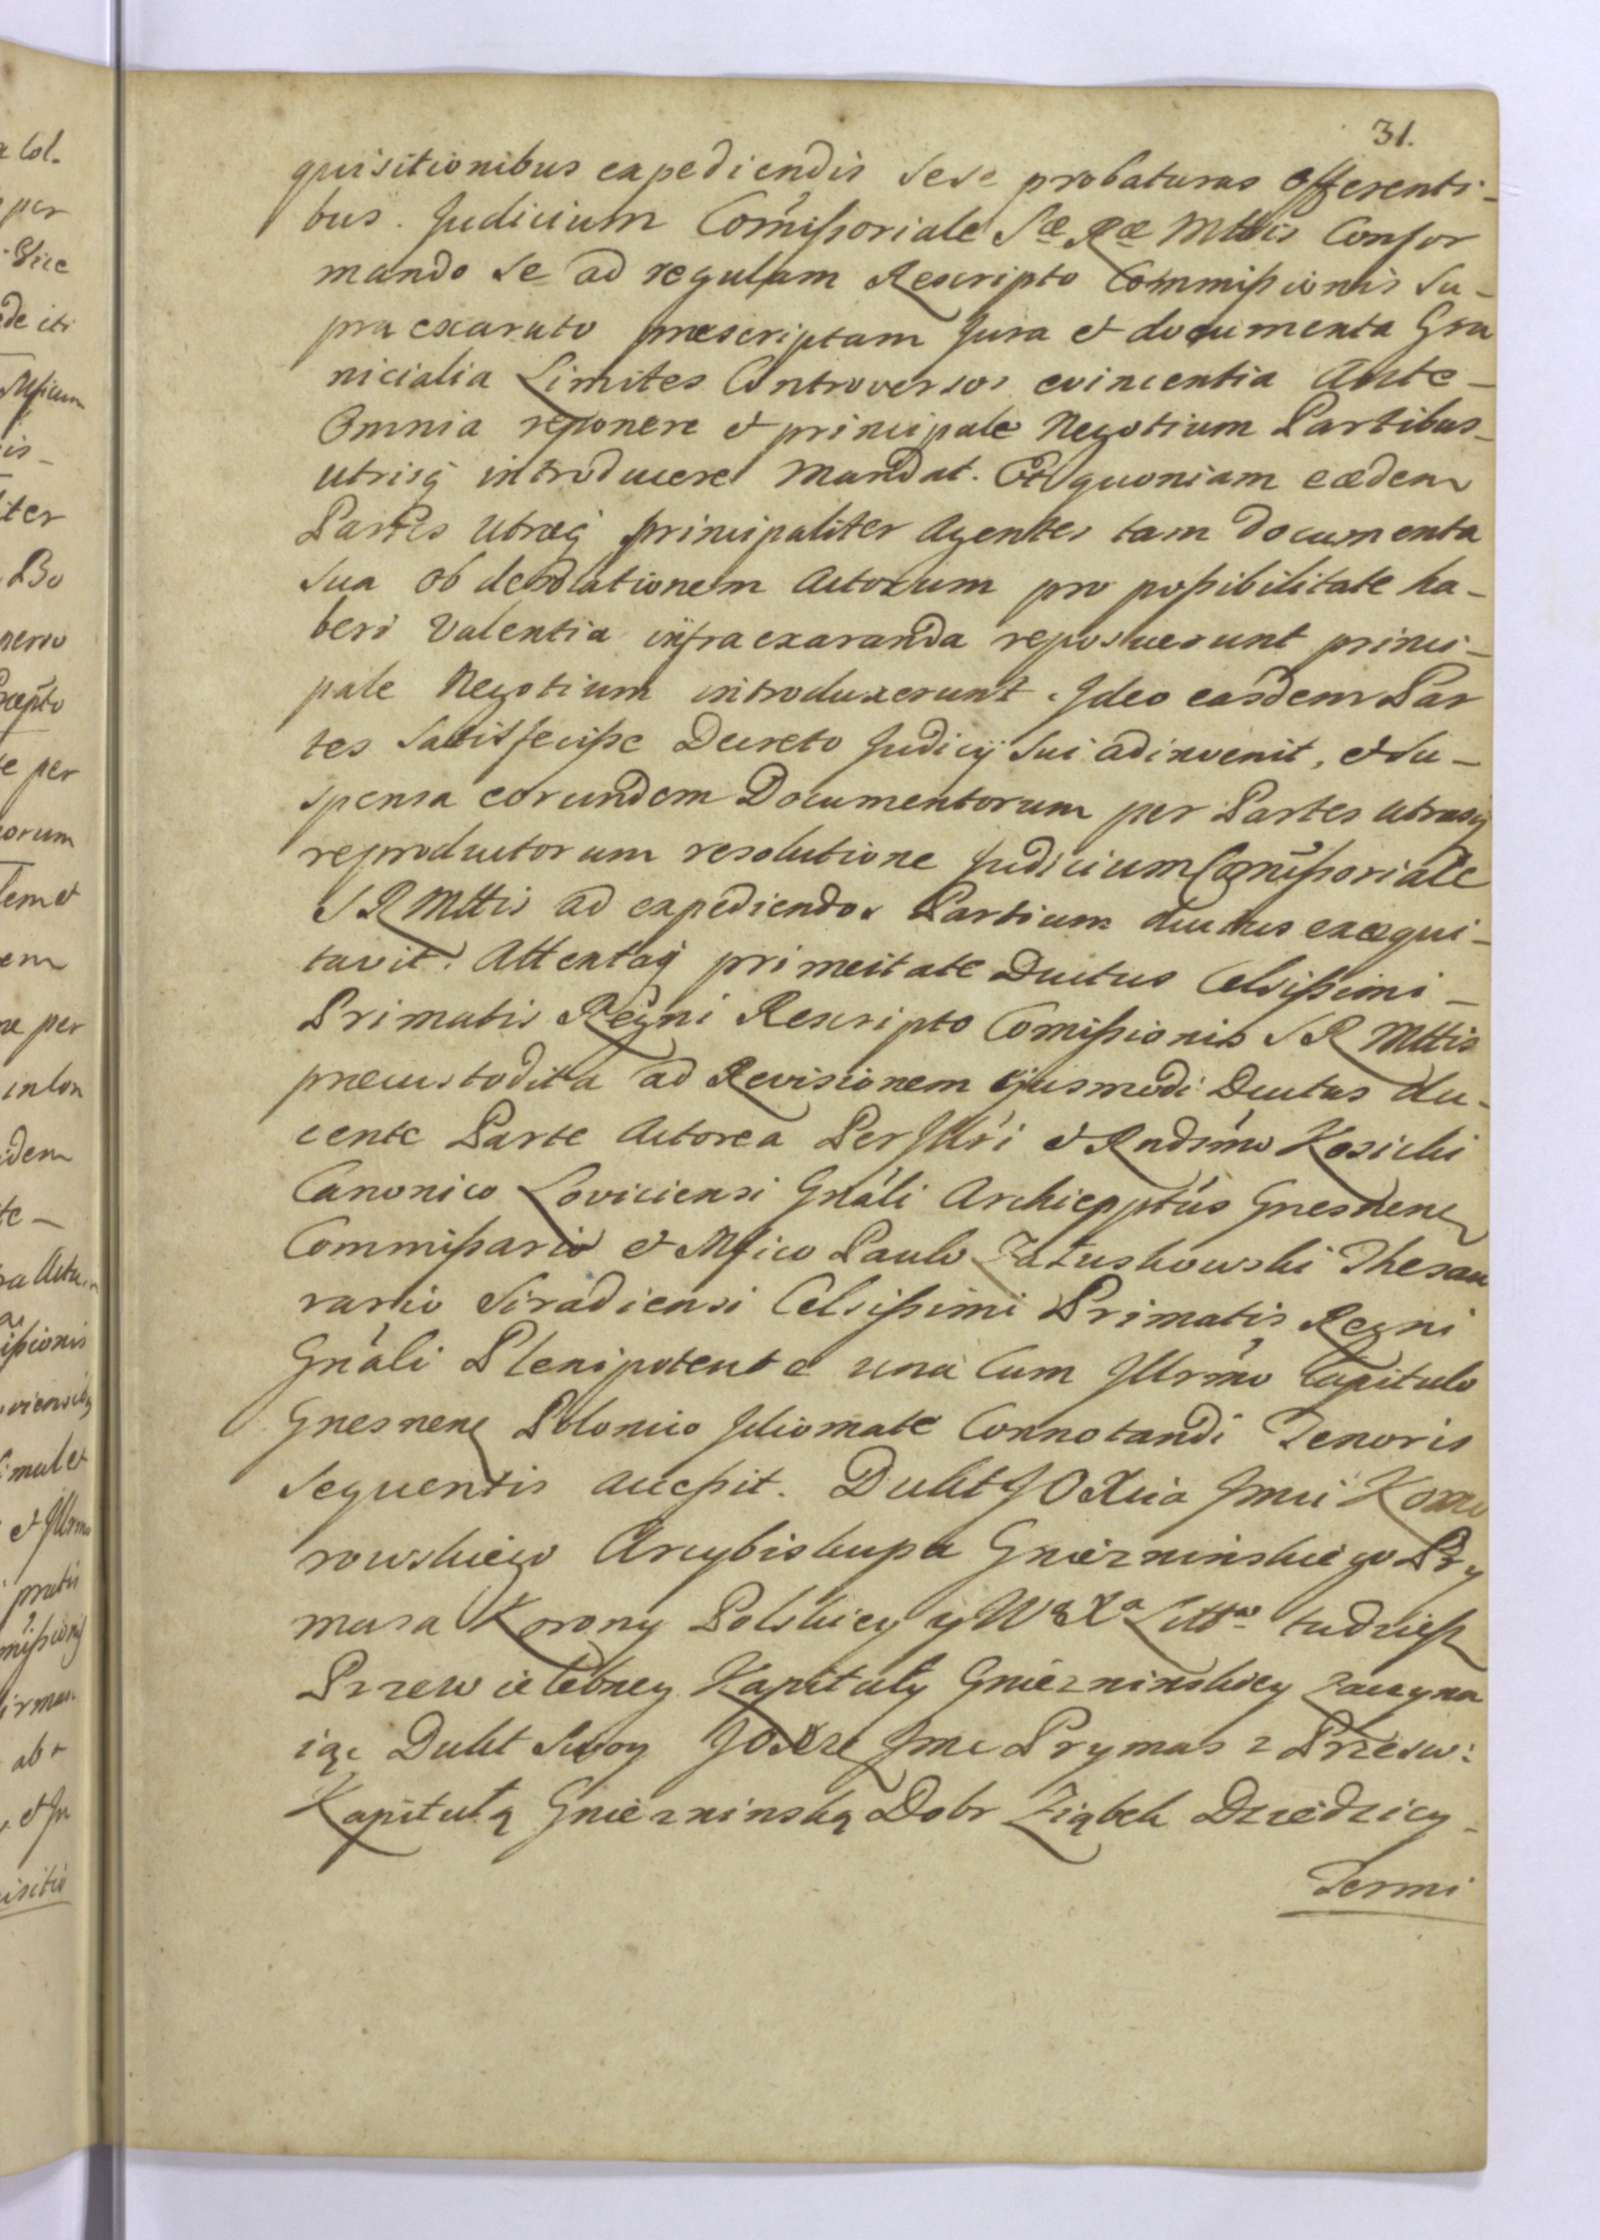 31.
quisitionibus expediendis sese probaturas offerenti-
bus. Judicium Com̃issoriale Sæ Ræ Mttis Confor
mando se ad regulam Rescripto Commissionis Su-
pra exarato præscriptam Jura et documenta Gra
nicialia Limites Controversos evincentia Ante-
Omnia reponere et principale Negotium Partibus-
utrisq introducere Mandat. Et quoniam eædem
Partes utræq principaliter Agentes tam documenta
sua ob desolationem Actorum pro possibilitate ha-
beri Valentia infra exaranda reposuerunt princi-
pale Negotium introduxerunt. Ideo easdem Par
tes satisfecisse Decreto Judicij sui adinvenit, et su-
spensa eorundem Documentorum per Partes utrasq
reproductorum resolutione Judicium Com̃issoriale
S R Mttis ad expediendos Partium ductus exæqui-
tavit. Attentaq primeitate Ductus Celsissimi-
Primatis Regni Rescripto Comissionis S R Mttis
præcustodita ad Revisionem ejusmodi Ductus du-
cente Parte Actorea Per Jllri et Rndimo Kosicki
Canonico Loviciensi Gnáli Archieppťus Gnesnene
Commissario et Mfico Paulo Załuskowski Thesau
rario Siradiensi Celsissimi Primatis Regni
Gnáli Plenipotente una Cum Jllrimo Capitulo
Gnesnene Polonico Idiomate Connotandi Tenoris
Sequentis accepit. Dukt J O Xcia Jmci Komo
rowskiego Arcybiskupa Gnieznińskiego Pry
masa Korony Polskiey y W X Litto tudziesz
Przewielebney Kapituły Gnieznińskiey zaczyna
iąc Dukt Swoy J O Xże Jmc Prymas z Przesw:
Kapitułą Gnieznińską Dobr Ziąbek Dziedzicy-
Termi